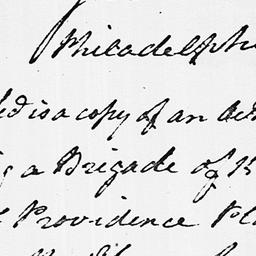 Philadelphi
ed is a copy of an Act
g a Brigade of
Providence Pl